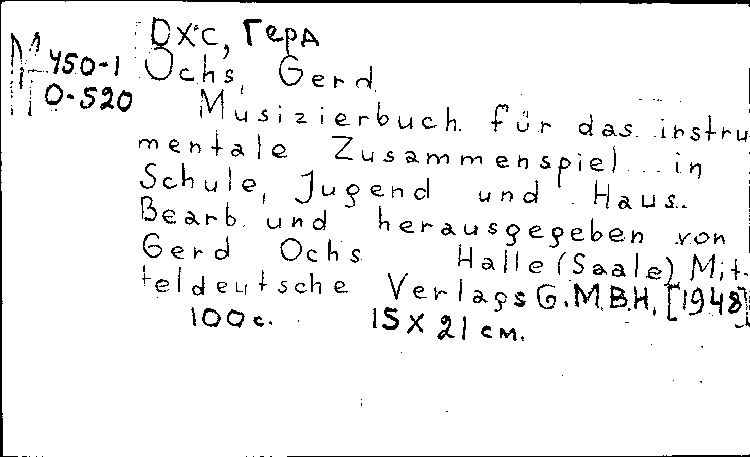 Охс, Герд
М 450-1 Ochs, Gerd
O-520
Musizierbuch für das instru
mentale Zusammenspiel... in
Schule, Jugend und Haus.
Bearb. und herausgegeben von
Gerd Ochs Halle (Saale) Mit-
teldeutsche Verlags G.M.B.H. [1948]
100 с. 15 X 21 см.